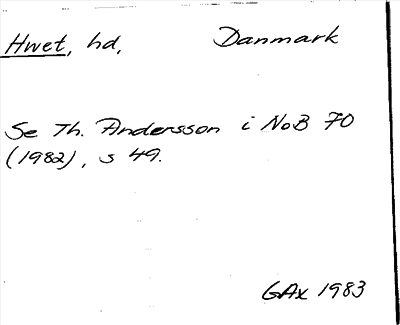 Hwet, hd, Danmark
Se Th. Andersson i NoB 70
(1982), s 49.
GAx 1983